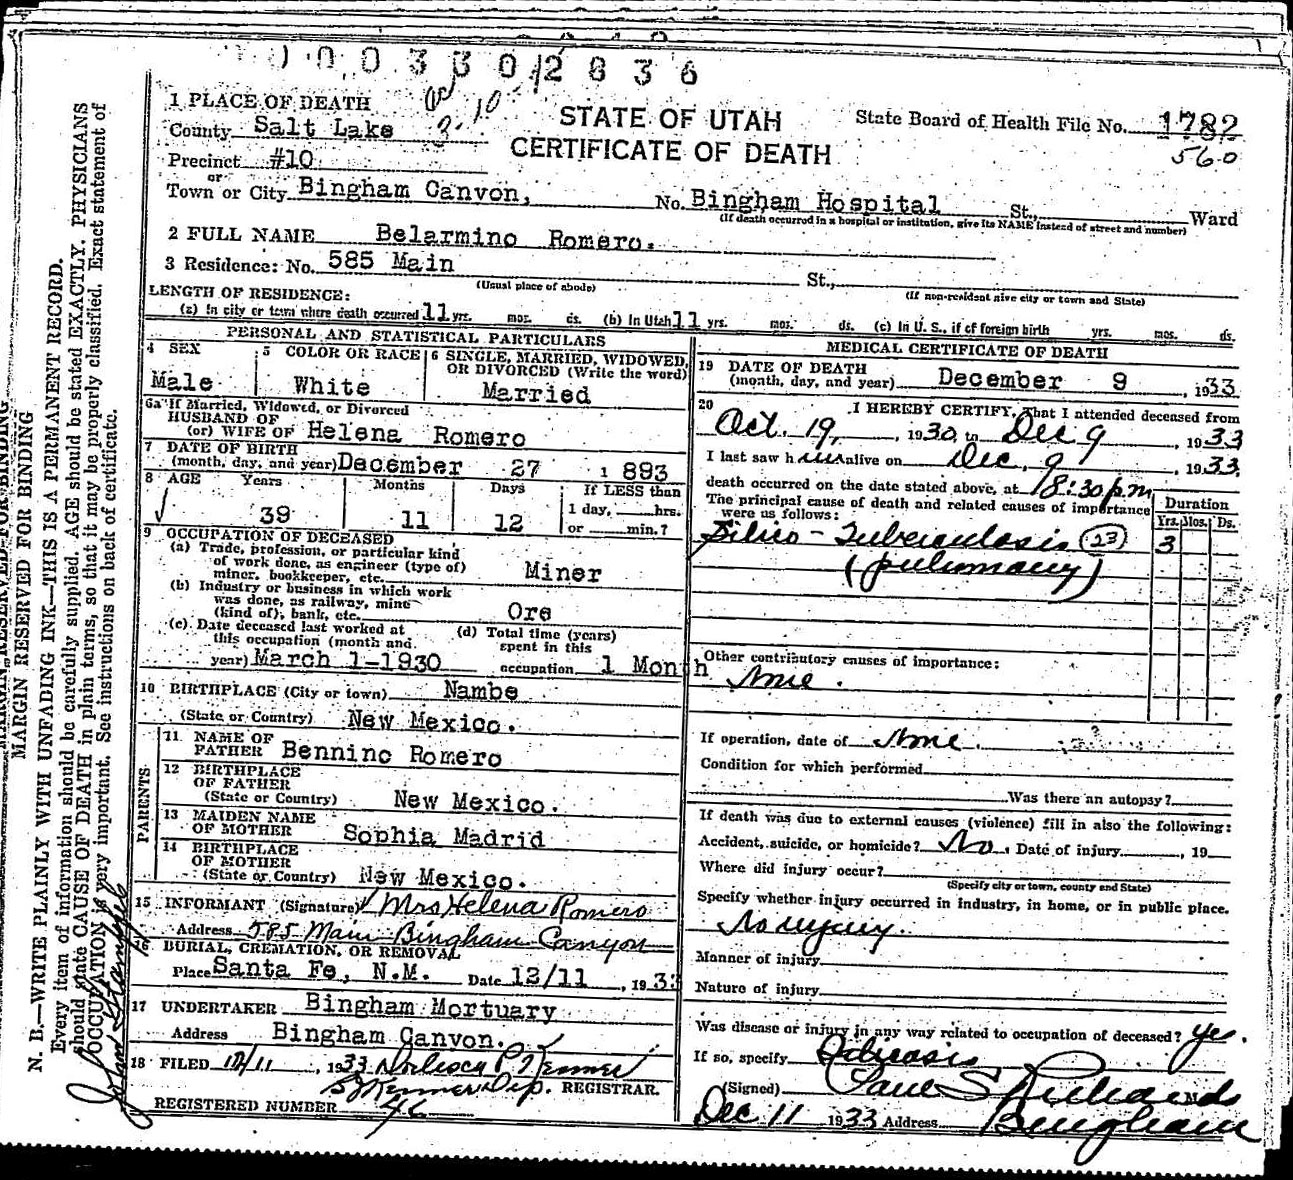 0003302836
1 PLACE OF DEATH
STATE OF UTAH
CERTIFICATE OF DEATH
State Board of Health File No. 1782
560
County Salt Lake
Precinct #10
or
Town or City Bingham Canyon, No. Bingham Hospital St., Ward
(If death occurred in a hospital or institution, give its NAME instead of street and number)
2 FULL NAME Belarmino Romero.
3 Residence: No. 585 Main St.,
(Usual place of abode) (If non-resident give city or town and State)
LENGTH OF RESIDENCE:
(a) In city or town where death occurred 11 yrs. mos. ds. (b) In Utah 11 yrs. mos. ds. (c) In U. S., if of foreign birth yrs. mos. ds.
PERSONAL AND STATISTICAL PARTICULARS
4 SEX Male
5 COLOR OR RACE White
6 SINGLE, MARRIED, WIDOWED, OR DIVORCED (Write the word) Married
6a If Married, Widowed, or Divorced
HUSBAND OF
(or) WIFE OF Helena Romero
7 DATE OF BIRTH
(month, day, and year) December 27 1893
8 AGE Years Months Days If LESS than
39 11 12 1 day, hrs.
or min.?
9 OCCUPATION OF DECEASED
(a) Trade, profession, or particular kind
of work done, as engineer (type of)
miner, bookkeeper, etc. Miner
(b) Industry or business in which work
was done, as railway, mine
(kind of), bank, etc. Ore
(c) Date deceased last worked at
this occupation (month and
year) March 1-1930
(d) Total time (years)
spent in this
occupation 1 Month
10 BIRTHPLACE (City or town) Nambe
(State or Country) New Mexico.
PARENTS
11 NAME OF
FATHER Bennino Romero
12 BIRTHPLACE
OF FATHER
(State or Country) New Mexico.
13 MAIDEN NAME
OF MOTHER Sophia Madrid
14 BIRTHPLACE
OF MOTHER
(State or Country) New Mexico.
15 INFORMANT (Signature) Mrs Helena Romero
Address 585 Main Bingham Canyon
16 BURIAL, CREMATION, OR REMOVAL
Place Santa Fe, N.M. Date 12/11, 1933
17 UNDERTAKER Bingham Mortuary
Address Bingham Canyon.
18 FILED 12/11, 1933
Dep. REGISTRAR.
REGISTERED NUMBER
MEDICAL CERTIFICATE OF DEATH
19 DATE OF DEATH
(month, day, and year) December 9, 1933
20 I HEREBY CERTIFY, That I attended deceased from
Oct. 19, 1930, to Dec 9, 1933
I last saw him alive on Dec. 9, 1933.
death occurred on the date stated above, at 8:30 p.m.
The principal cause of death and related causes of importance
were as follows:
Duration
Yrs. Mos. Ds.
Silico-Tuberculosis (23) 3
(pulmonary)
Other contributory causes of importance:
None.
If operation, date of None.
Condition for which performed
Was there an autopsy?
If death was due to external causes (violence) fill in also the following:
Accident, suicide, or homicide? No. Date of injury, 19
Where did injury occur?
(Specify city or town, county and State)
Specify whether injury occurred in industry, in home, or in public place.
No injury.
Manner of injury
Nature of injury
Was disease or injury in any way related to occupation of deceased? Yes.
If so, specify Silicosis
(Signed) Paul S Richards M.D.
Dec 11 1933 Address Bingham
MARGIN RESERVED FOR BINDING
N. B.—WRITE PLAINLY WITH UNFADING INK—THIS IS A PERMANENT RECORD.
Every item of information should be carefully supplied. AGE should be stated EXACTLY. PHYSICIANS
should state CAUSE OF DEATH in plain terms, so that it may be properly classified. Exact statement of
OCCUPATION is very important. See instructions on back of certificate.